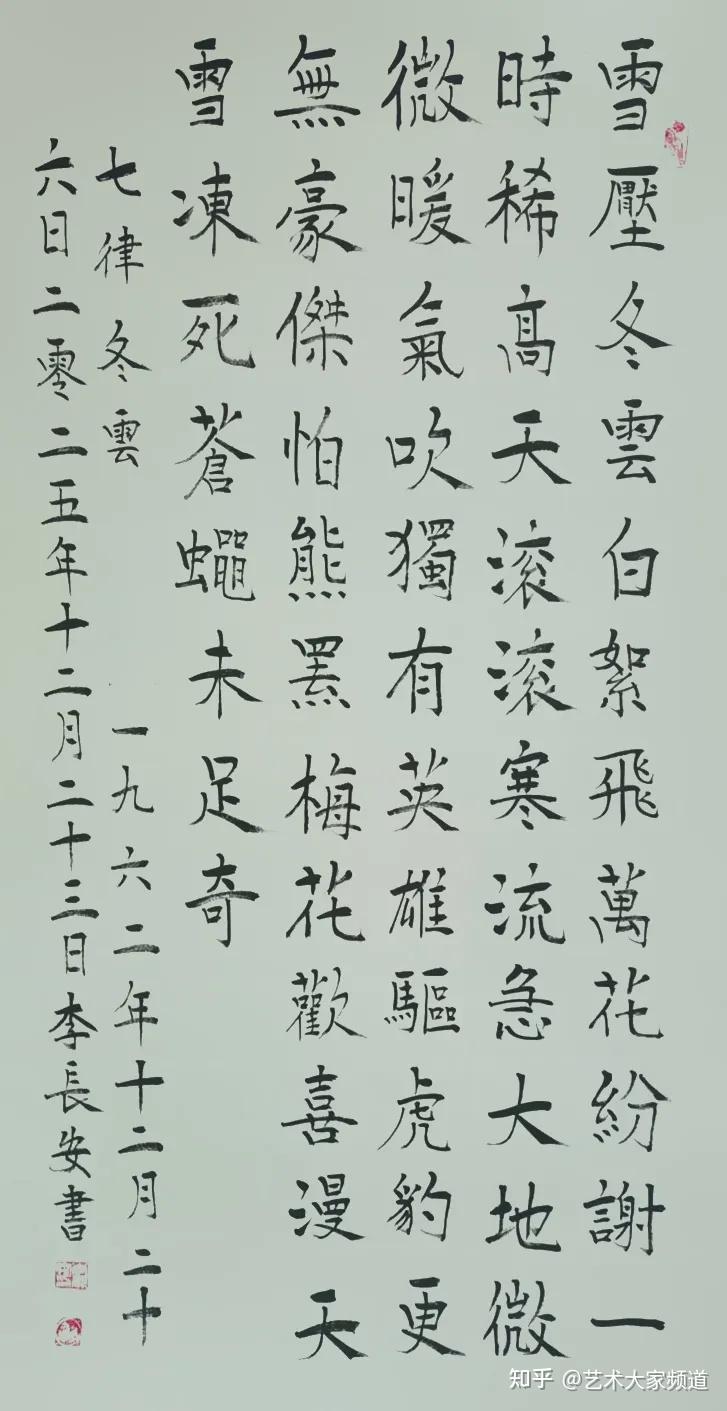 雪壓冬雲白絮飛萬花紛謝一
時稀高天滚滚寒流急大地微
微暖氣吹獨有英雄驅虎豹更
無豪傑怕熊羆梅花歡喜漫天
雪凍死蒼蠅未足奇
七律 冬雲 一九六二年十二月二十
六日二零二五年十二月二十三日李長安書
知乎 @艺术大家频道